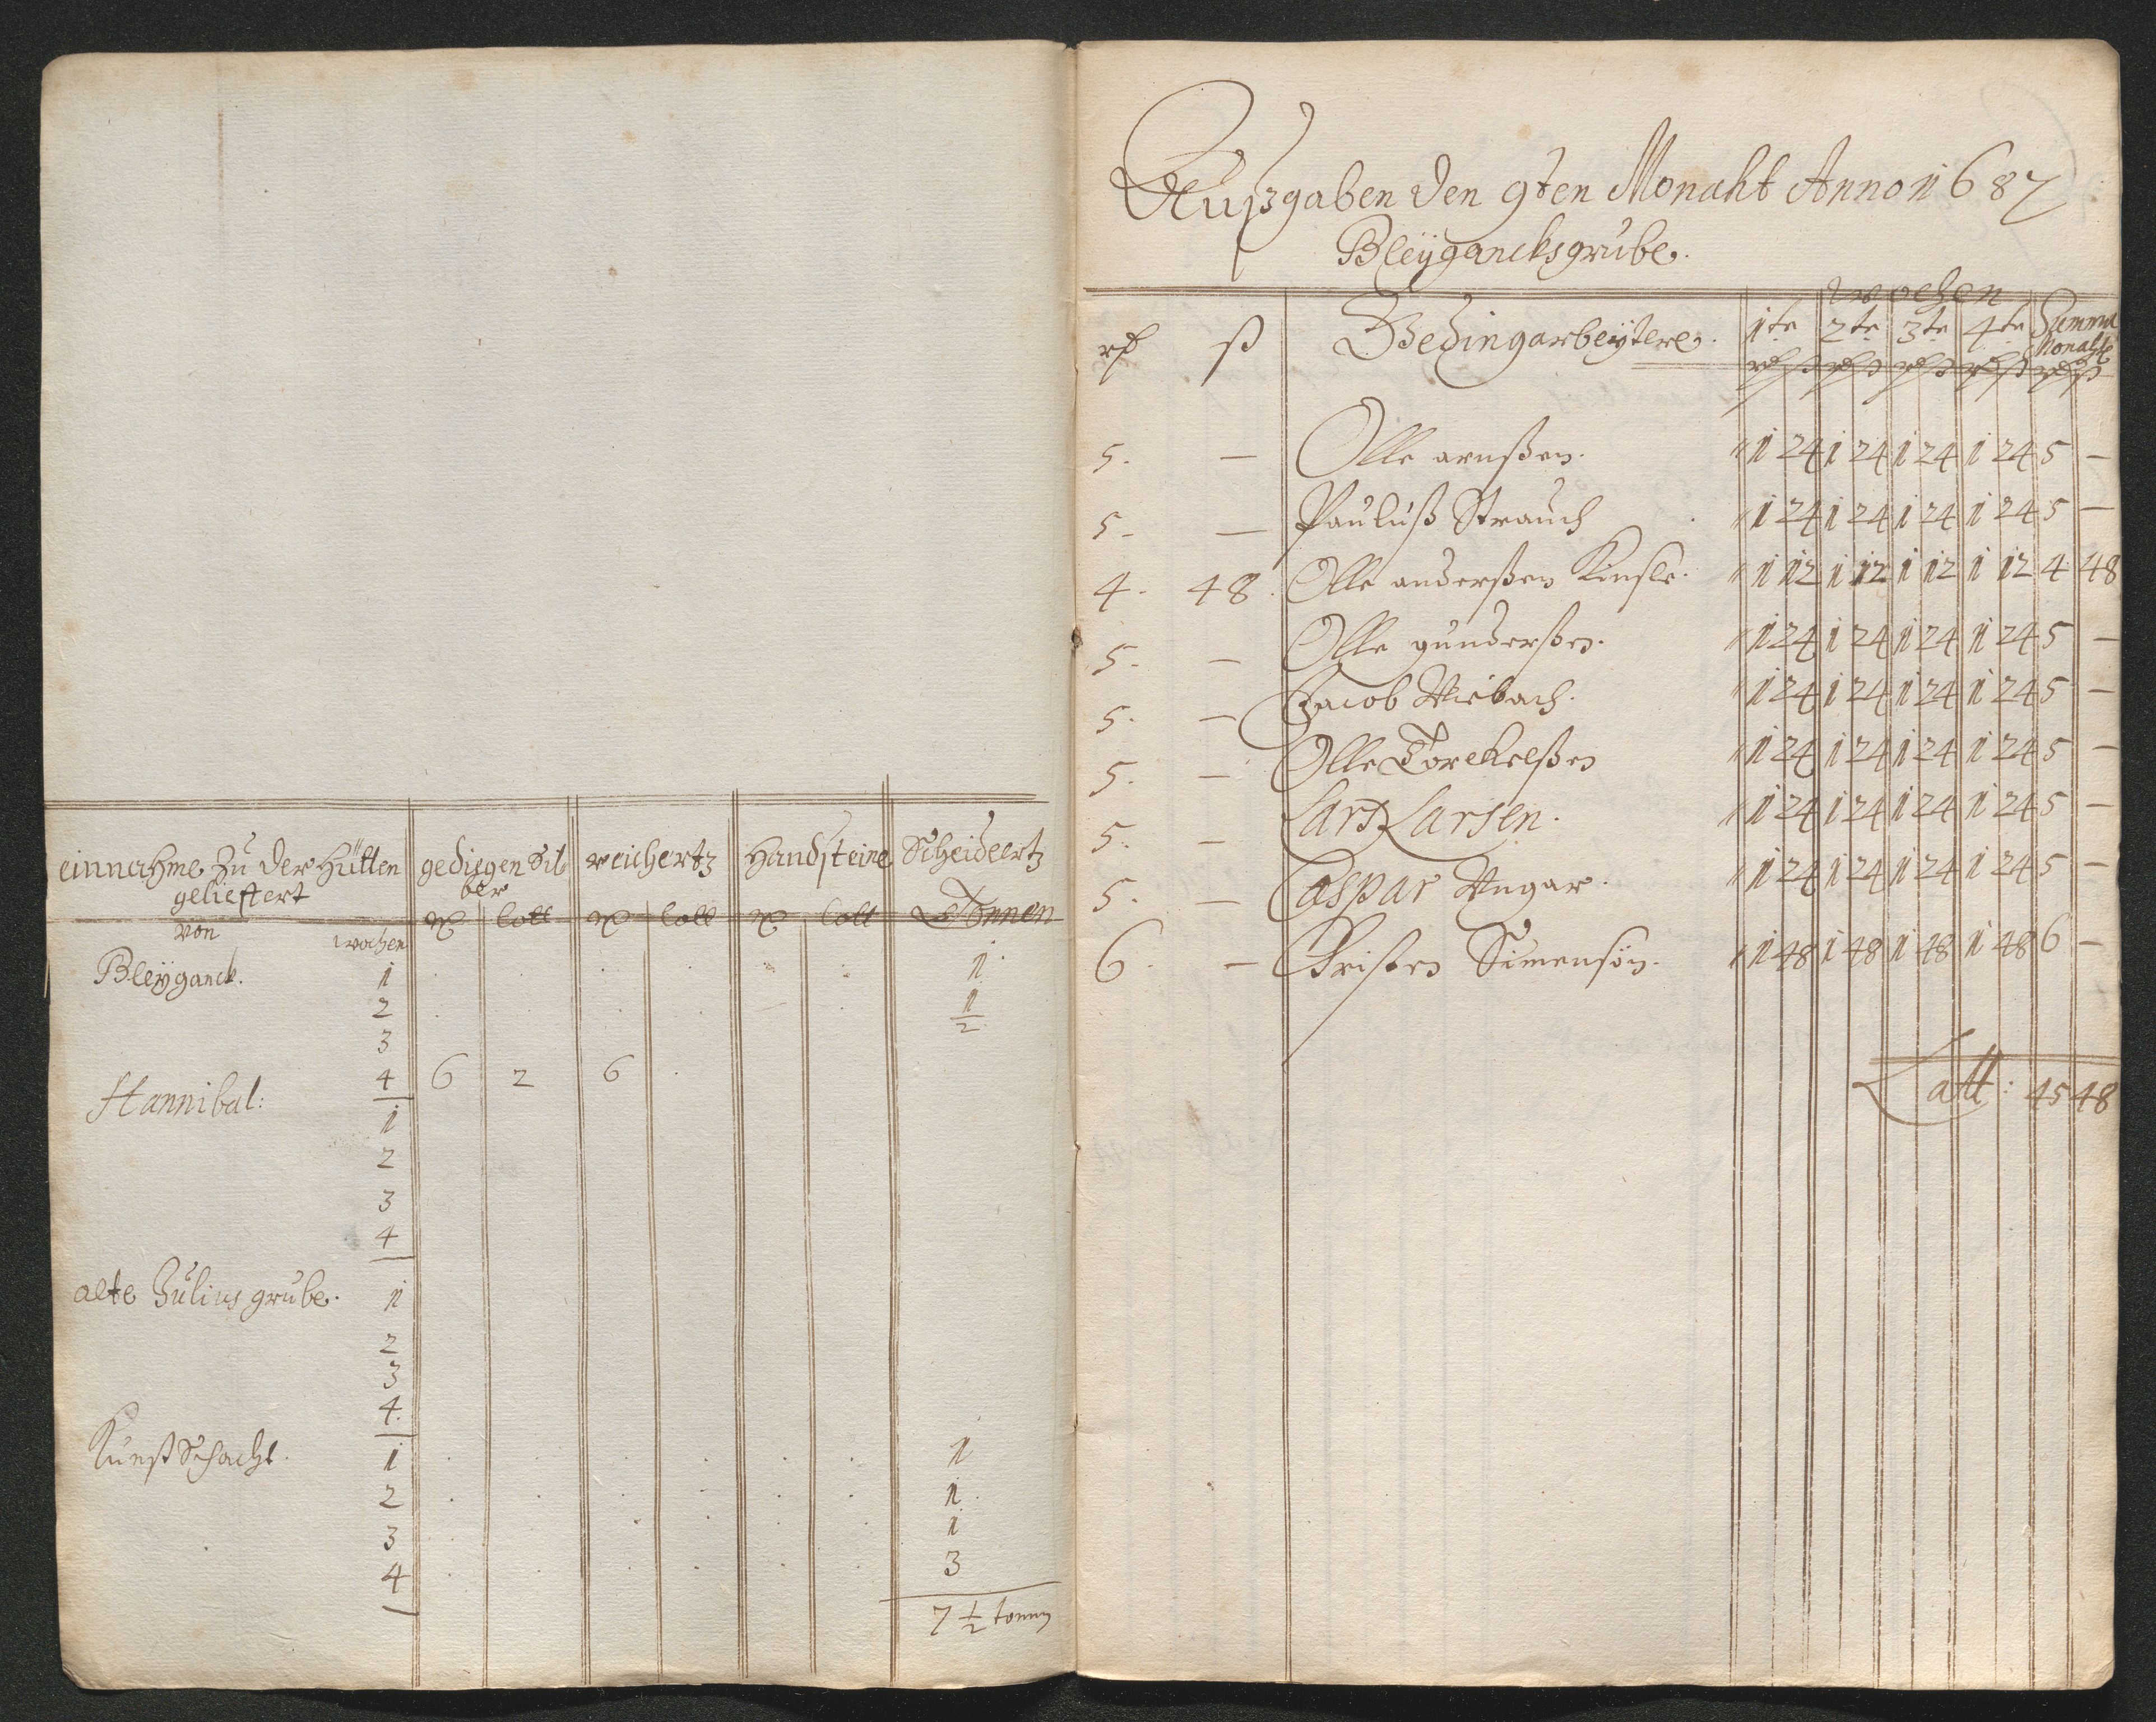 einnahme Zu der Hütten | gediegen Sil | reichertz | Handsteine | Scheidertz
gelieffert | ber
von | wochen | ℔ | lott | ℔ | lott | ℔ | lott | Tonnen
Bleyganck. | 1 | . | . | . | . | . | . | 1
2 | . | . | . | . | . | . | 1/2
3
4 | 6 | 2 | 6 | .
Hannibal: | 1
2
3
4
alte Julius grube. | 1
2
3
4.
Kunst Schacht. | 1 | . | . | . | . | . | . | 1
2 | . | . | . | . | . | . | 1
3 | . | . | . | . | . | . | 1
4 | . | . | . | . | . | . | 3
7 1/2 tonnen
Außgaben den 9ten Monaht Anno 1687
Bleygancksgrube.
wochen
rß | ß | Bedingarbeytere. | 1te | 2te | 3te | 4te | Summa Monaht
5. | — | Olle arnßen. | 1 24 | 1 24 | 1 24 | 1 24 | 5 —
5. | — | Pauluß Strauch | 1 24 | 1 24 | 1 24 | 1 24 | 5 —
4. | 48. | Olle anderßen | 1 12 | 1 12 | 1 12 | 1 12 | 4 48
5. | — | Olle gunderßen. | 1 24 | 1 24 | 1 24 | 1 24 | 5 —
5. | — | Jacob Wiebach. | 1 24 | 1 24 | 1 24 | 1 24 | 5 —
5. | — | Olle Torckelßen | 1 24 | 1 24 | 1 24 | 1 24 | 5 —
5. | — | Lars Larsen. | 1 24 | 1 24 | 1 24 | 1 24 | 5 —
5. | — | Caspar Ungar. | 1 24 | 1 24 | 1 24 | 1 24 | 5 —
6. | — | Christen Simensön. | 1 48 | 1 48 | 1 48 | 1 48 | 6 —
Latt: 45 48